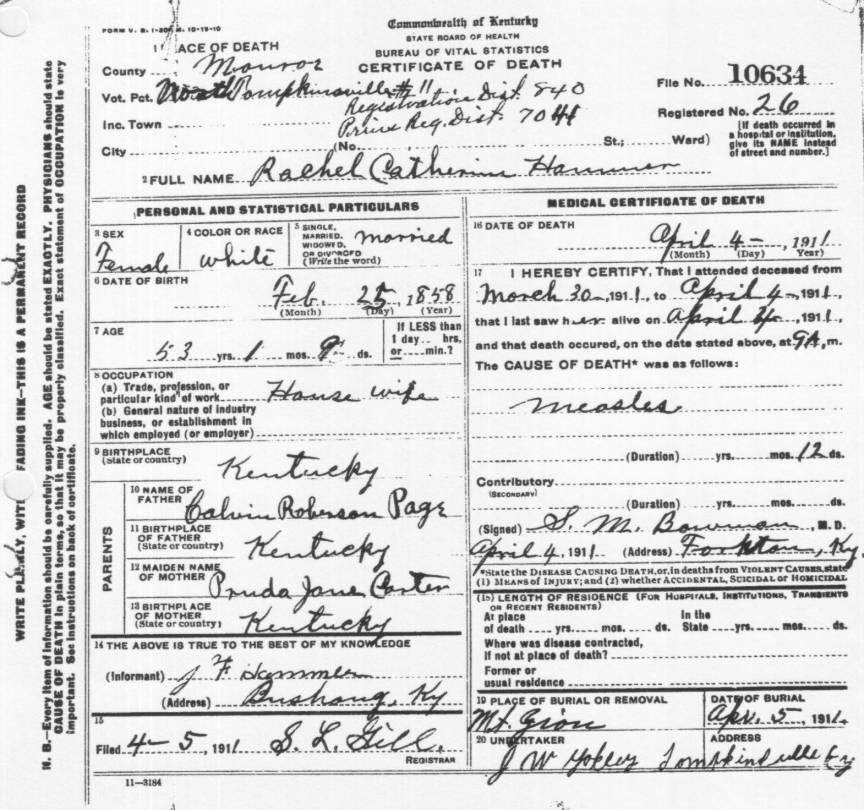 FORM V. S. 1-20 M. 10-19-10
Commonwealth of Kentucky
STATE BOARD OF HEALTH
BUREAU OF VITAL STATISTICS
CERTIFICATE OF DEATH
1 LACE OF DEATH
County Monroe
Vot. Pct. North Tompkinsville # 11
Registration Dist. 840
Inc. Town Prime Reg. Dist. 7041
City (No. St.; Ward)
File No. 10634
Registered No. 26
[If death occurred in a hospital or institution, give its NAME instead of street and number.]
2 FULL NAME Rachel Catherine Hammer
PERSONAL AND STATISTICAL PARTICULARS
3 SEX Female
4 COLOR OR RACE white
5 SINGLE, MARRIED, WIDOWED, OR DIVORCED (Write the word) married
6 DATE OF BIRTH Feb. 25, 1858
(Month) (Day) (Year)
7 AGE 53 yrs. 1 mos. 9 ds.
If LESS than 1 day.. hrs. or.....min.?
8 OCCUPATION
(a) Trade, profession, or particular kind of work House wife
(b) General nature of industry business, or establishment in which employed (or employer)
9 BIRTHPLACE (State or country) Kentucky
PARENTS
10 NAME OF FATHER Calvin Roberson Page
11 BIRTHPLACE OF FATHER (State or country) Kentucky
12 MAIDEN NAME OF MOTHER Pruda Jane Carter
13 BIRTHPLACE OF MOTHER (State or country) Kentucky
14 THE ABOVE IS TRUE TO THE BEST OF MY KNOWLEDGE
(Informant) J F Hammer
(Address) Bushong, Ky
15
Filed 4-5, 1911 S. L. Gill.
REGISTRAR
11-3184
MEDICAL CERTIFICATE OF DEATH
16 DATE OF DEATH
April 4-, 1911
(Month) (Day) Year)
17 I HEREBY CERTIFY, That I attended deceased from
March 30-, 1911, to April 4-, 1911,
that I last saw her alive on April 4, 1911,
and that death occured, on the date stated above, at 9A, m.
The CAUSE OF DEATH* was as follows:
Measles
(Duration) yrs. mos. 12 ds.
Contributory
(SECONDARY)
(Duration) yrs. mos. ds.
(Signed) S. M. Bowman, M. D.
April 4, 1911 (Address) Fountain, Ky.
*State the DISEASE CAUSING DEATH, or, in deaths from VIOLENT CAUSES, state
(1) MEANS of INJURY; and (2) whether ACCIDENTAL, SUICIDAL or HOMICIDAL
(18) LENGTH OF RESIDENCE (FOR HOSPITALS, INSTITUTIONS, TRANSIENTS OR RECENT RESIDENTS)
At place of death yrs. mos. ds. In the State yrs. mos. ds.
Where was disease contracted,
If not at place of death?
Former or
usual residence
19 PLACE OF BURIAL OR REMOVAL Mt. Zion
DATE OF BURIAL Apr. 5, 1911
20 UNDERTAKER J W Yokley
ADDRESS Tompkinsville Ky
WRITE PLAINLY, WITH FADING INK—THIS IS A PERMANENT RECORD
N. B.—Every item of information should be carefully supplied. AGE should be stated EXACTLY. PHYSICIANS should state
CAUSE OF DEATH in plain terms, so that it may be properly classified. Exact statement of OCCUPATION is very
important. See instructions on back of certificate.